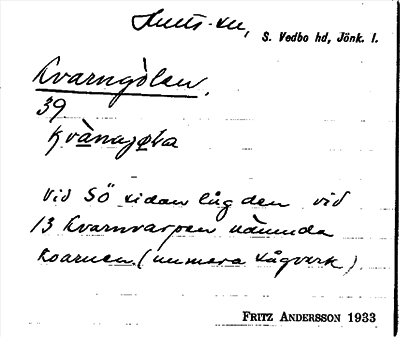 S. Vedbo hd, Jönk. l.
Kvarngölen.
39
Vid SÖ sidan låg den vid
13 Kvarnvarpen nämnda
kvarnen. (numera sågverk)
FRITZ ANDERSSON 1933